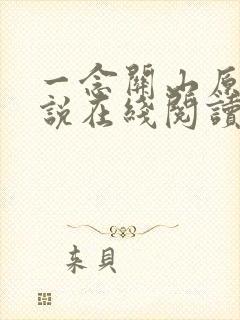 一念關山原
說在綫閱讀
來貝